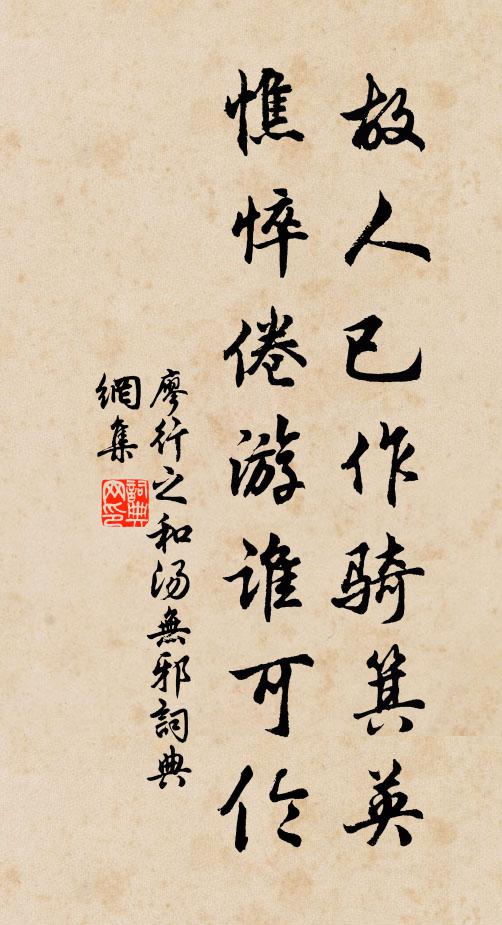 故人已作骑箕英
憔悴倦游谁可伦
廖行之和汤無邪詞典
網集
詞典
网印